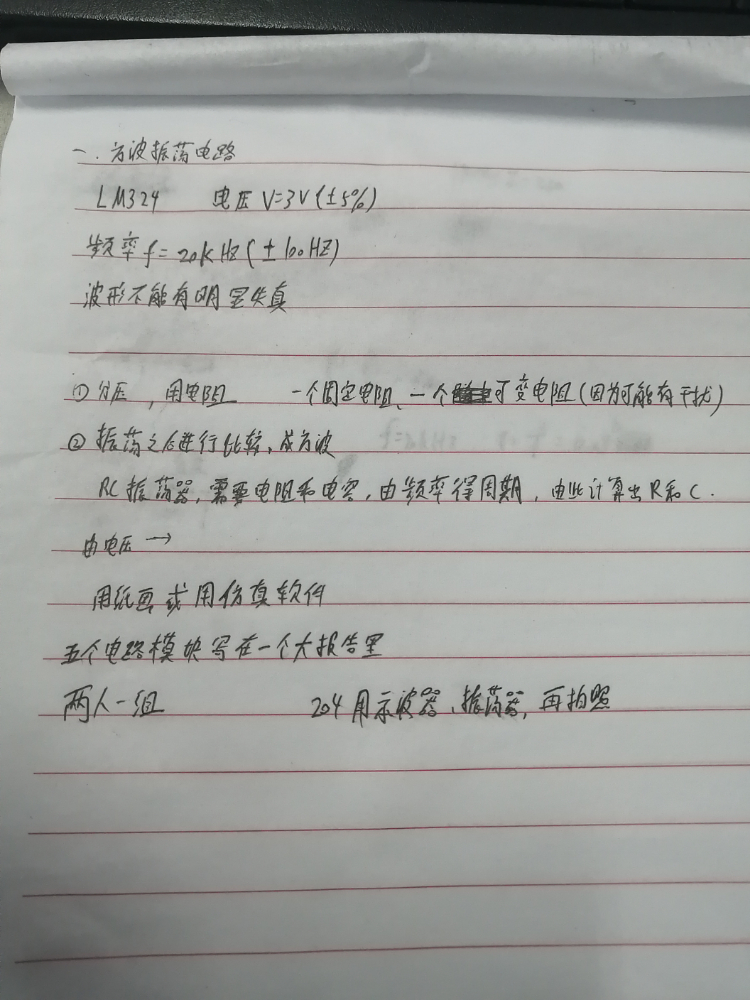 一. 方波振荡电路
LM324 电压 V=3V(±5%)
频率 f=20KHZ(±100HZ)
波形不能有明显失真
① 分压，用电阻 一个固定电阻、一个可变电阻(因为可能有干扰)
② 振荡之后进行比较、成方波
RC振荡器，需要电阻和电容，由频率得周期，由此计算出R和C.
由电压→
用纸画或用仿真软件
五个电路模块写在一个大报告里
两人一组 204用示波器、振荡器，再拍照